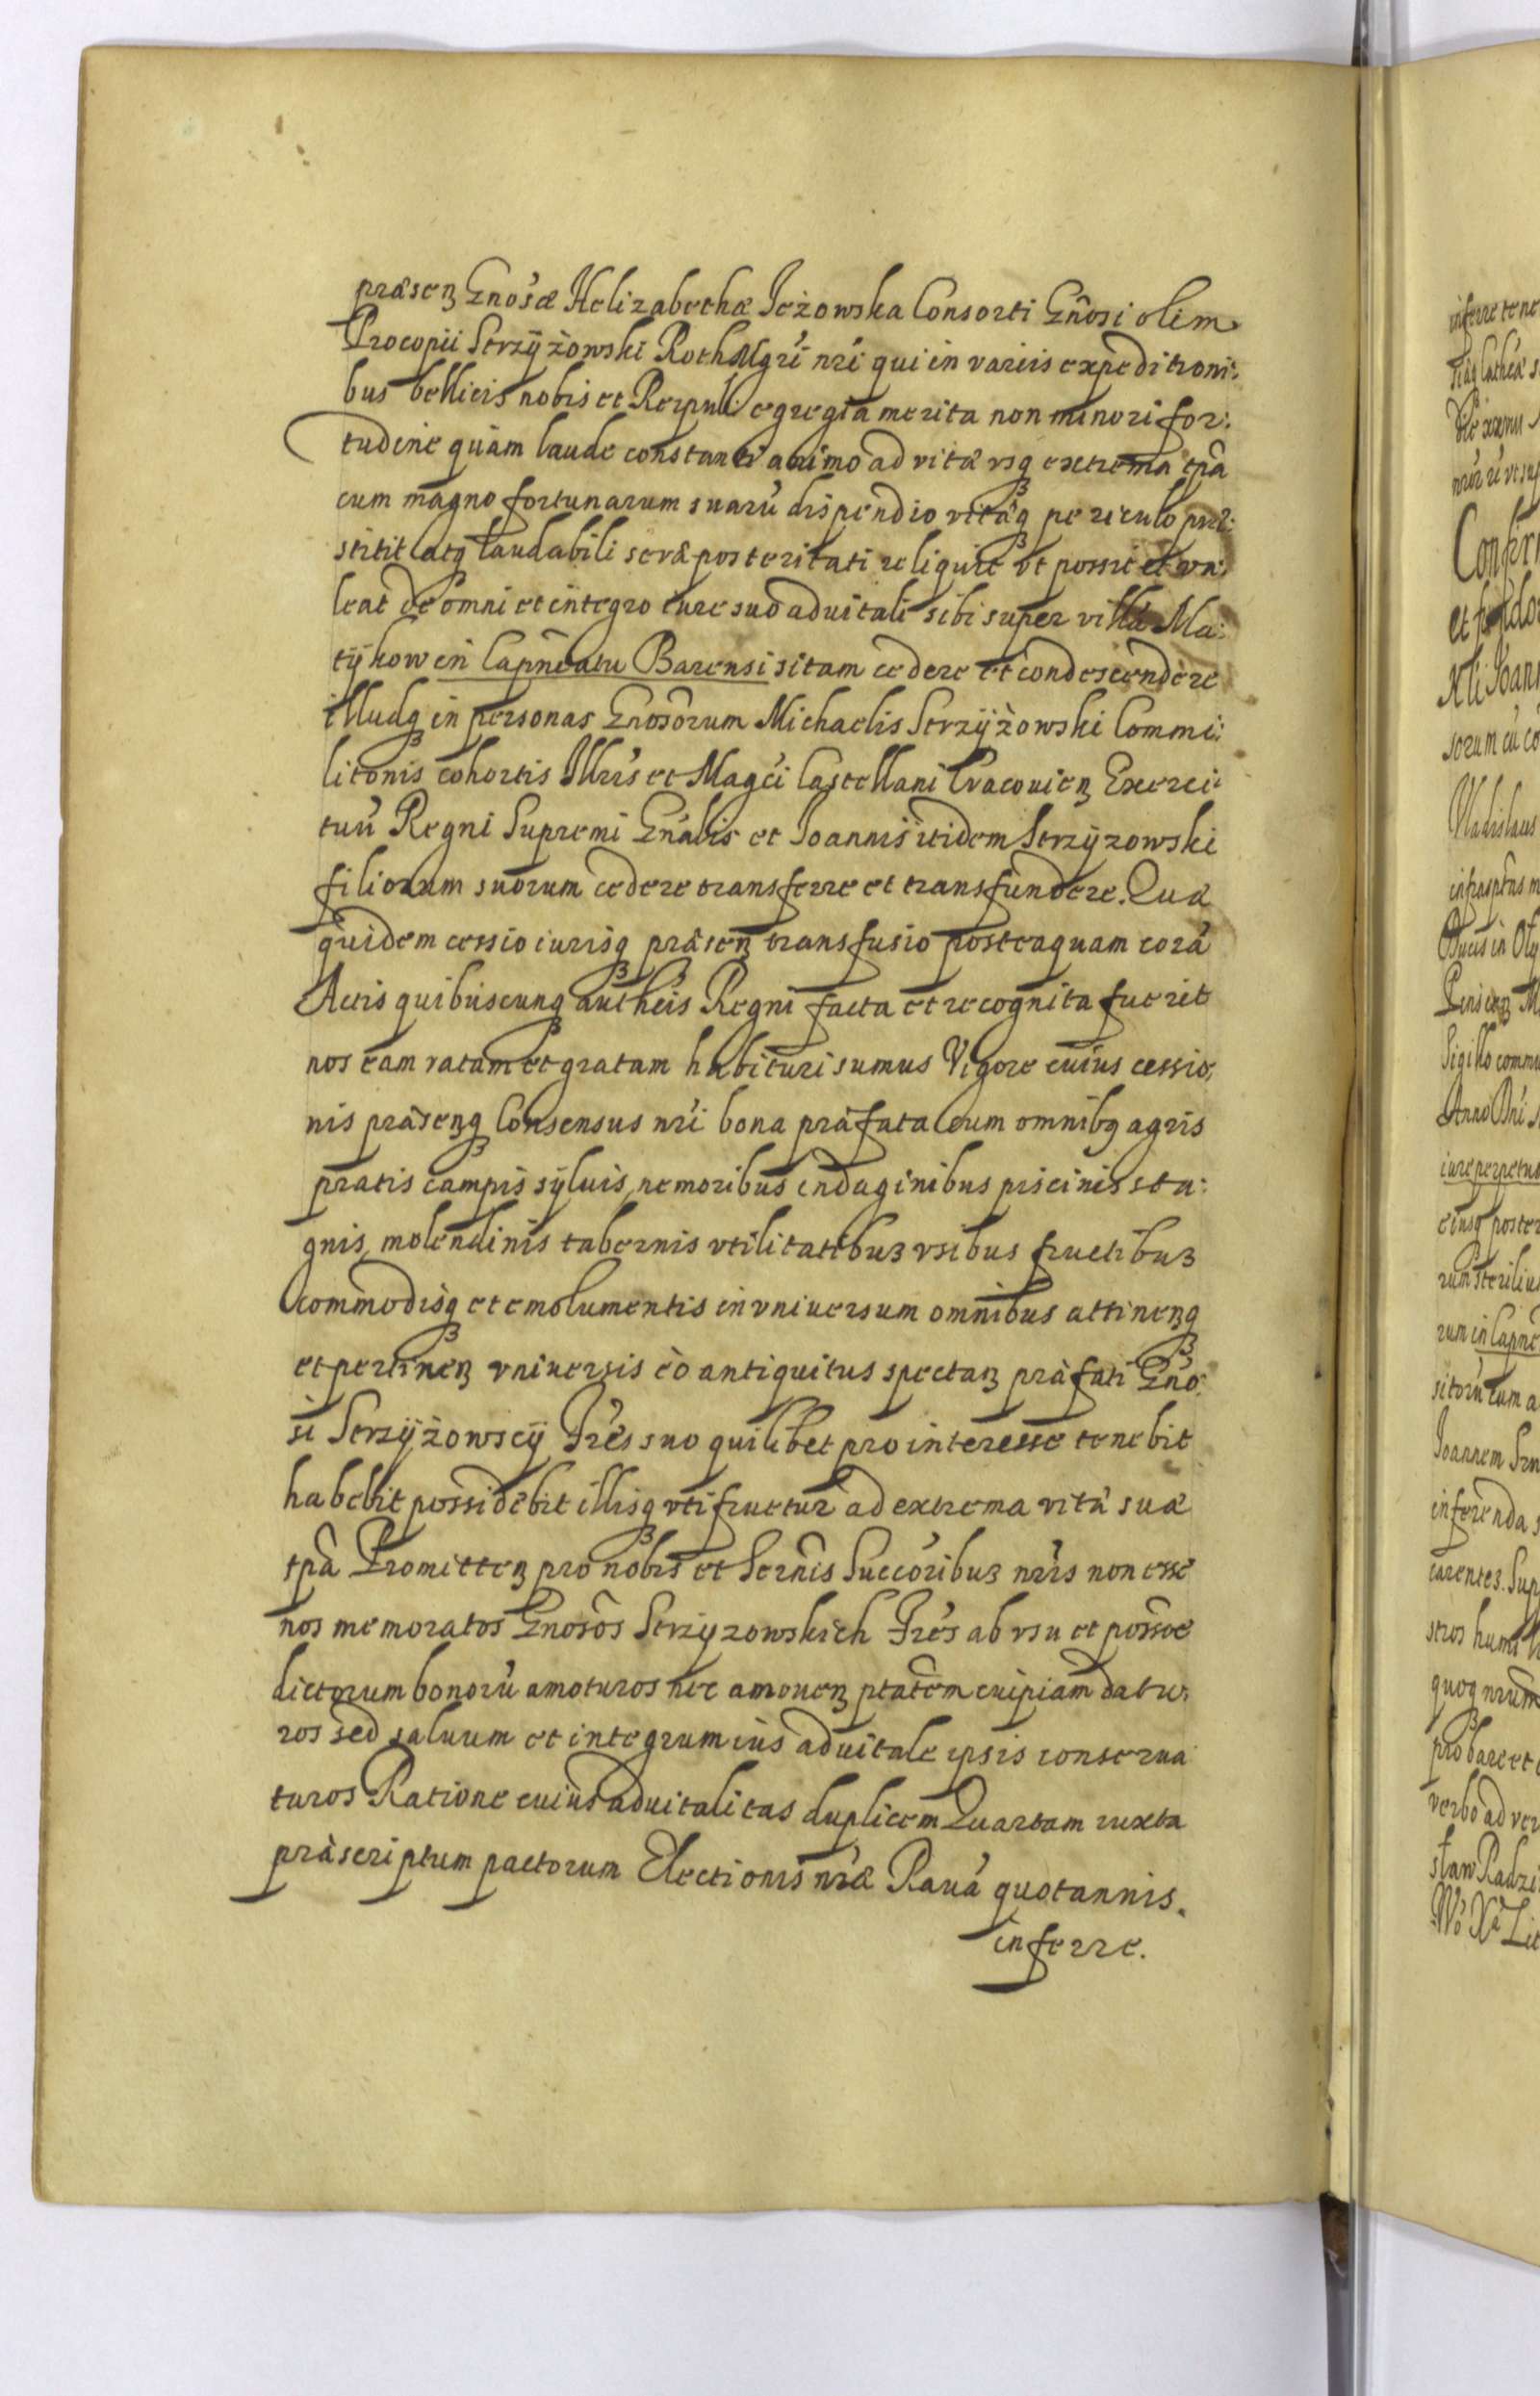 præsenʒ Gnosæ Helizabethæ Jeżowska Consorti Gnosi olim
Procopii Strzÿżowski RothMgri nri qui in variis expeditioni:
bus bellicis nobis et Reipubl: egregia merita non minori for:
tudine quàm laude constanti animo ad vitæ vsqʒ extrema tpa
cum magno fortunarum suarū dispendio vitæqʒ periculo præ:
stitit atqʒ laudabili seræ posteritati reliquit vt possit et va:
leat de omni et integro iure suo aduitali sibi super villa Ma:
tÿkow in Capneatu Barensi sitam cedere et condescendere
illudqʒ in personas Gnosorum Michaelis Strzÿżowski Commi:
litonis cohortis Illris et Magci Castellani Cracouienʒ Exerci:
tuū Regni Supremi Gnalis et Joannis itidem Strzÿzowski
filiorum suorum cedere transferre et transfundere. Quæ
quidem cessio iurisqʒ præsenʒ transfusio posteaquam corā
Actis quibuscunqʒ authcis Regni facta et recognita fuerit
nos eam ratam et gratam habituri sumus Vigore cuius cessio:
nis præsenʒqʒ Consensus nri bona præfata cum omnibʒ agris
pratis campis sÿluis, nemoribus indaginibus piscinis sta:
gnis, molendinis tabernis vtilitatibuʒ vsibus fructibuʒ
commodisqʒ et emolumentis in vniuersum omnibus attinenʒqʒ
et pertinenʒ vniuersis eò antiquitus spectanʒ præfati Gno:
si Strzÿżowscÿ Fres suo quilibet pro interesse tenebit
habebit possidebit illisqʒ vtifruetur ad extrema vitæ suæ
tpa Promittenʒ pro nobis et Sernis Succoribuʒ nris non esse
nos memoratos Gnosos Strzÿzowskich Fres ab vsu et possoe
dictorum bonorū amoturos nec amouenʒ ptatem cuipiam datu:
ros sed saluum et integrum ius aduitale ipsis conserua
turos Ratione cuius aduitalitas duplicem Quartam iuxta
præscriptum pactorum Electionis nræ Rauā quotannis.
inferre.